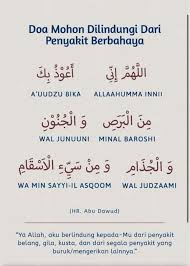 Doa Mohon Dilindungi Dari
Penyakit Berbahaya
اَللَّهُمَّ إِنِّي أَعُوْذُ بِكَ
A'UUDZU BIKA ALLAAHUMMA INNII
مِنَ الْبَرَصِ وَ الْجُنُوْنِ
WAL JUNUUNI MINAL BAROSHI
وَ الْجُذَامِ وَ مِنْ سَيِّءِ الْأَسْقَامِ
WA MIN SAYYI-IL ASQOOM WAL JUDZAAMI
(HR. Abu Dawud)
"Ya Allah, aku berlindung kepada-Mu dari penyakit
belang, gila, kusta, dan dari segala penyakit yang
buruk/mengerikan lainnya."